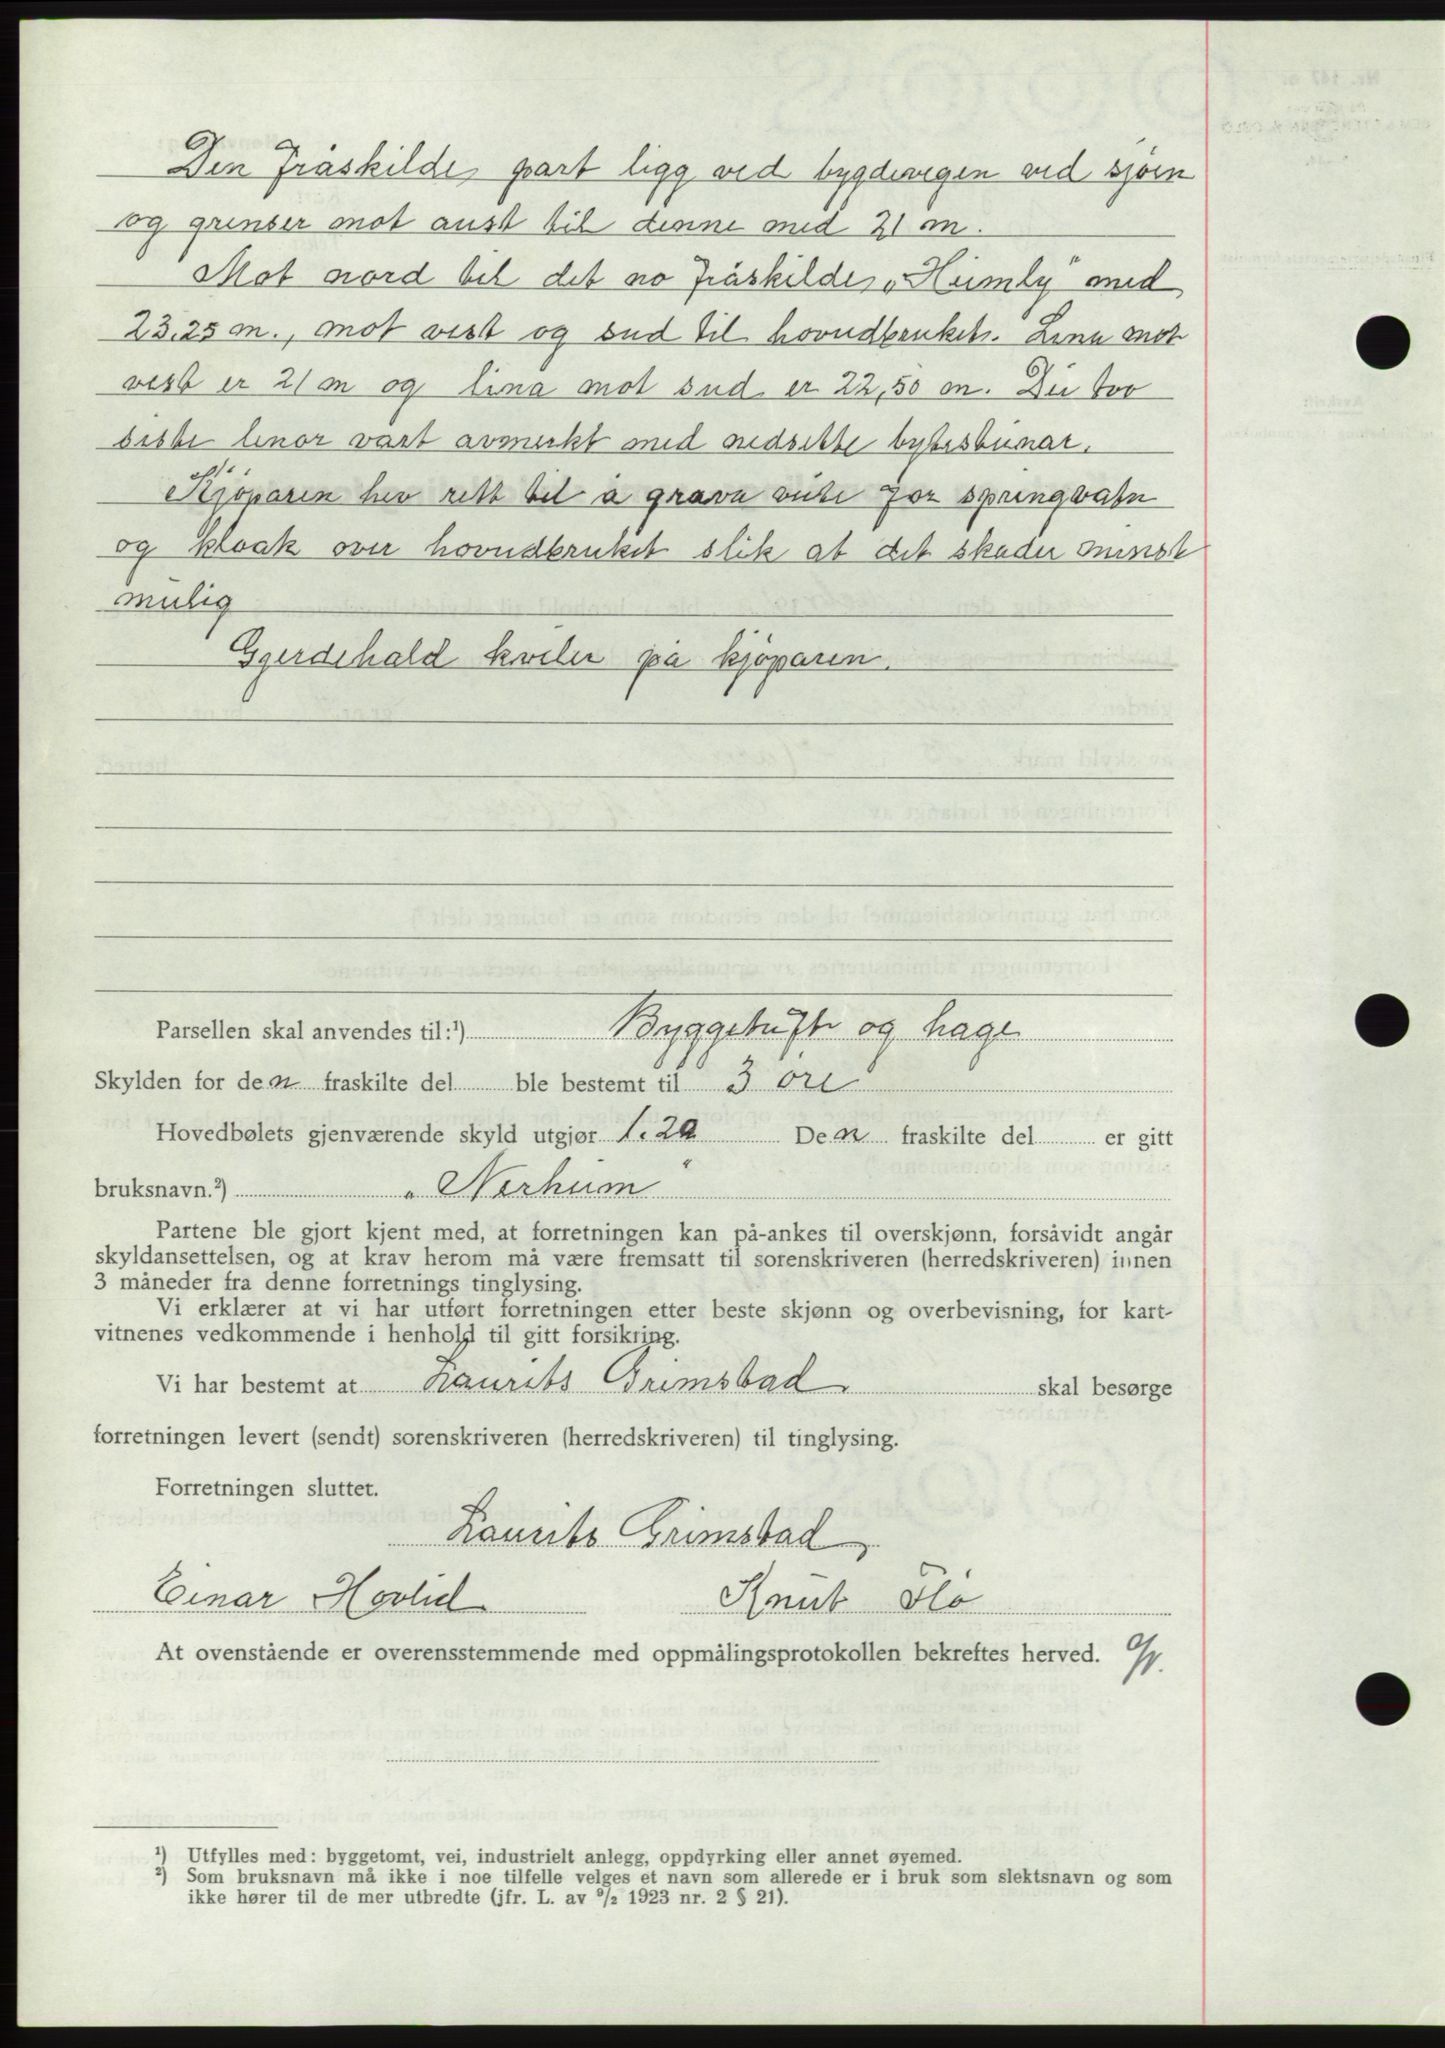 Den fråskilde part ligg ved bygdevegen ved sjøen
og grenser mot aust til denne med 21 m.
Mot nord til det no fråskilde, „Heimly" med
23.25 m., mot vest og sud til hovudbruket. Lina mot
vest er 21 m og lina mot sud er 22,50 m. Dei tvo
siste linor vart avmerkt med nedsette bytesteinar.
Kjøparen hev rett til å grava veite for springvatn
og kloak over hovudbruket slik at det skader minst
mulig
Gjerdehald kviler på kjøparen.
Parsellen skal anvendes til:¹) Byggetuft og hage
Skylden for den fraskilte del ble bestemt til 3 øre
Hovedbølets gjenværende skyld utgjør 1.20 Den fraskilte del er gitt
bruksnavn.²) „Nerheim"
Partene ble gjort kjent med, at forretningen kan på-ankes til overskjønn, forsåvidt angår
skyldansettelsen, og at krav herom må være fremsatt til sorenskriveren (herredskriveren) innen
3 måneder fra denne forretnings tinglysing.
Vi erklærer at vi har utført forretningen etter beste skjønn og overbevisning, for kart-
vitnenes vedkommende i henhold til gitt forsikring.
Vi har bestemt at Laurits Grimstad skal besørge
forretningen levert (sendt) sorenskriveren (herredskriveren) til tinglysing.
Forretningen sluttet.
Laurits Grimstad
Einar Hovlid Knut Flø
At ovenstående er overensstemmende med oppmålingsprotokollen bekreftes herved.
¹) Utfylles med: byggetomt, vei, industrielt anlegg, oppdyrking eller annet øyemed.
²) Som bruksnavn må ikke i noe tilfelle velges et navn som allerede er i bruk som slektsnavn og som
ikke hører til de mer utbredte (jfr. L. av ⁹/₂ 1923 nr. 2 § 21).